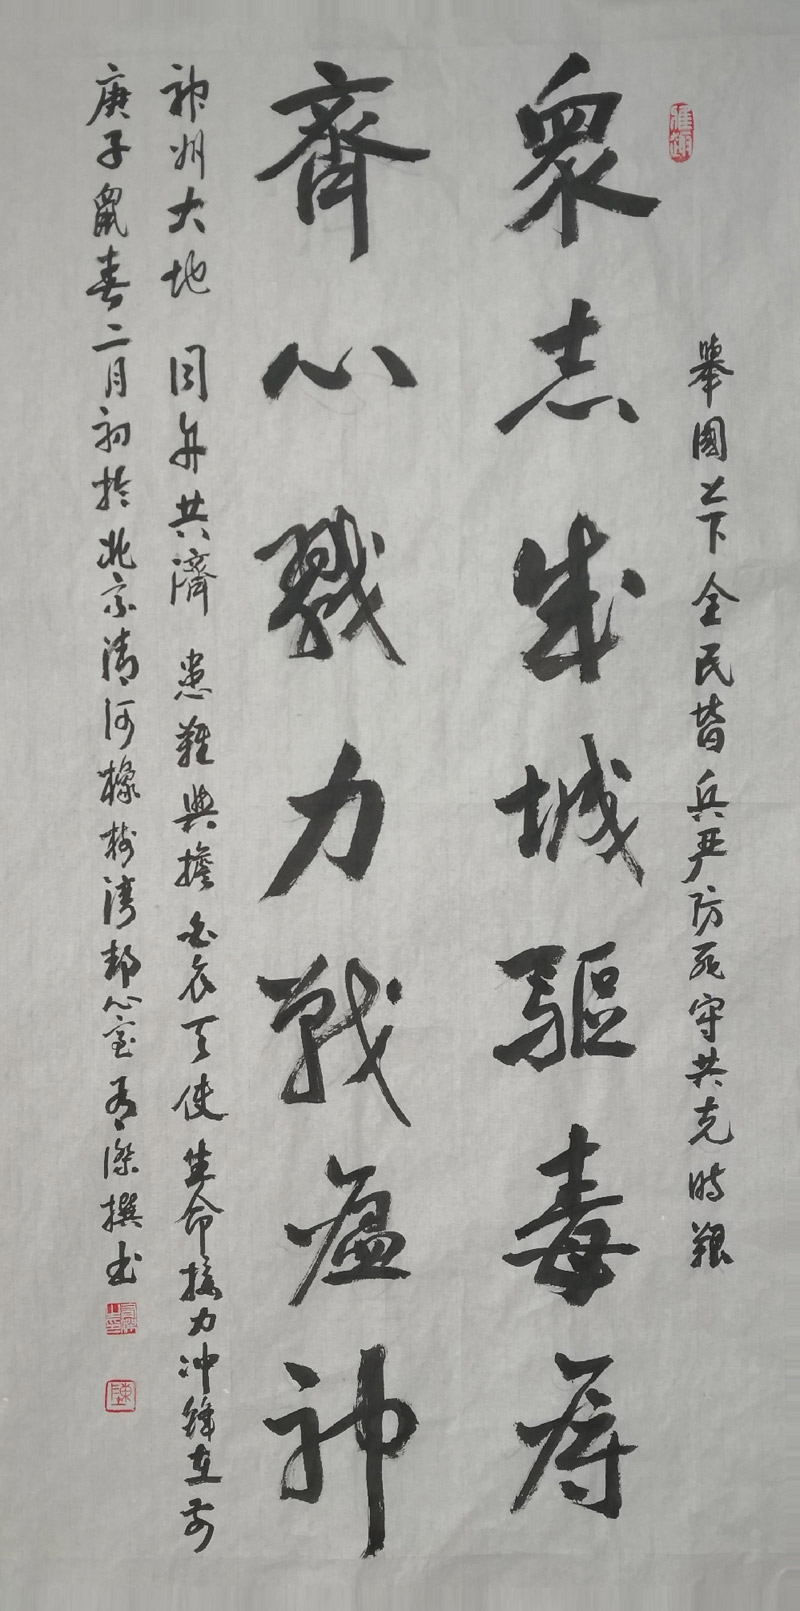 舉國上下全民皆兵严防死守共克時艱
眾志成城驅毒
齊心戮力戰瘟神
神州大地同舟共濟患難與擔白衣天使生命接力冲鋒在前
庚子鼠春二月初於北京清河橡树湾静心室有傑撰书
雅趣
陳